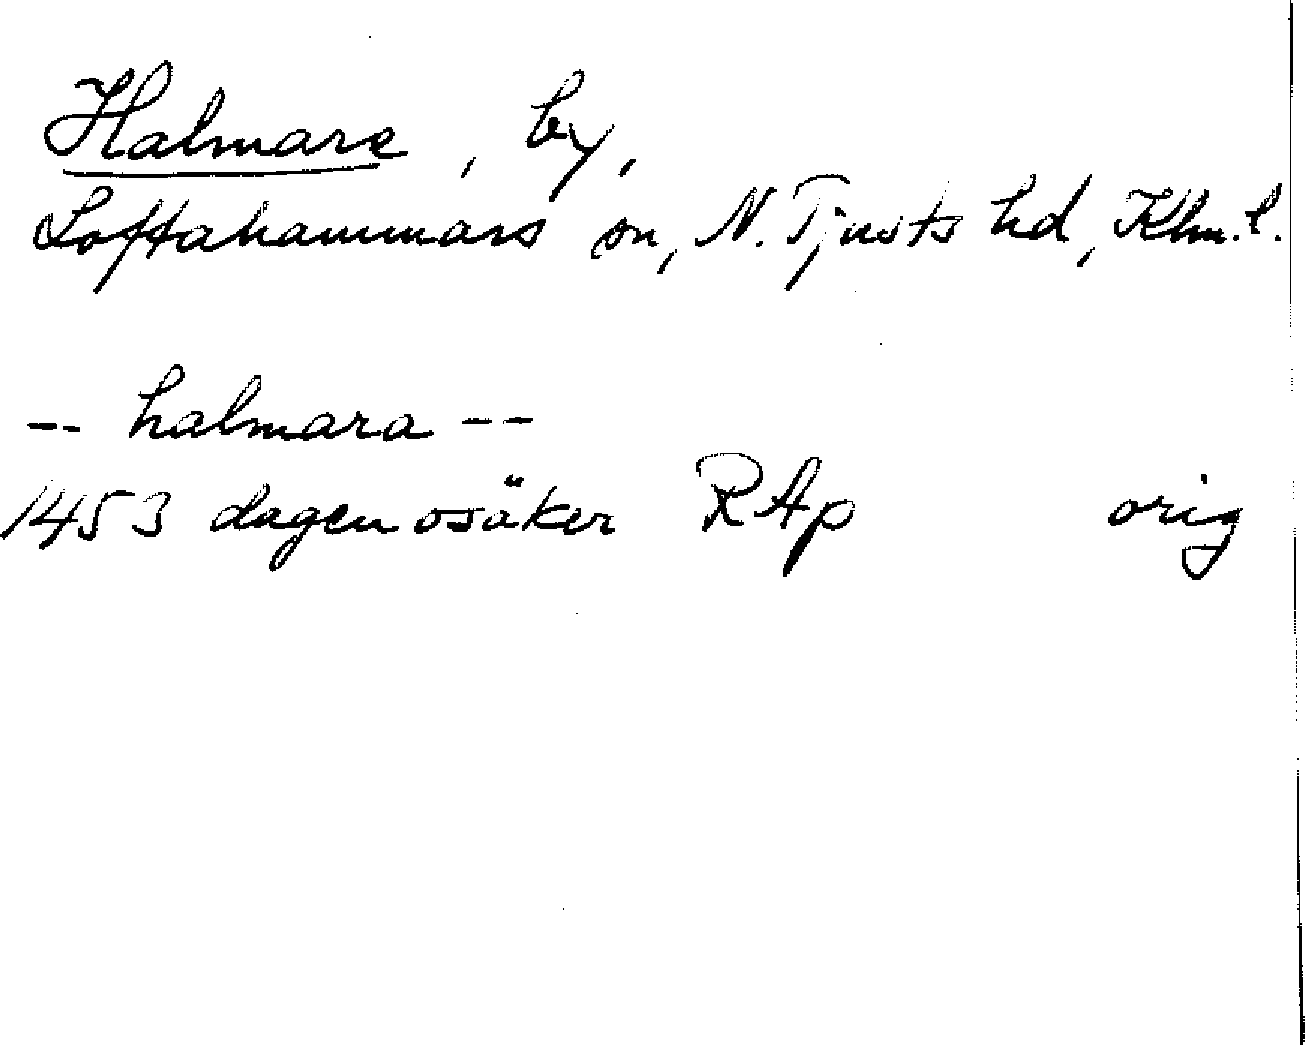 Halmare, by,
Loftahammars sn, N. Tjusts hd, Klm. l.
-- halmara --
1453 dagen osäker RAp orig